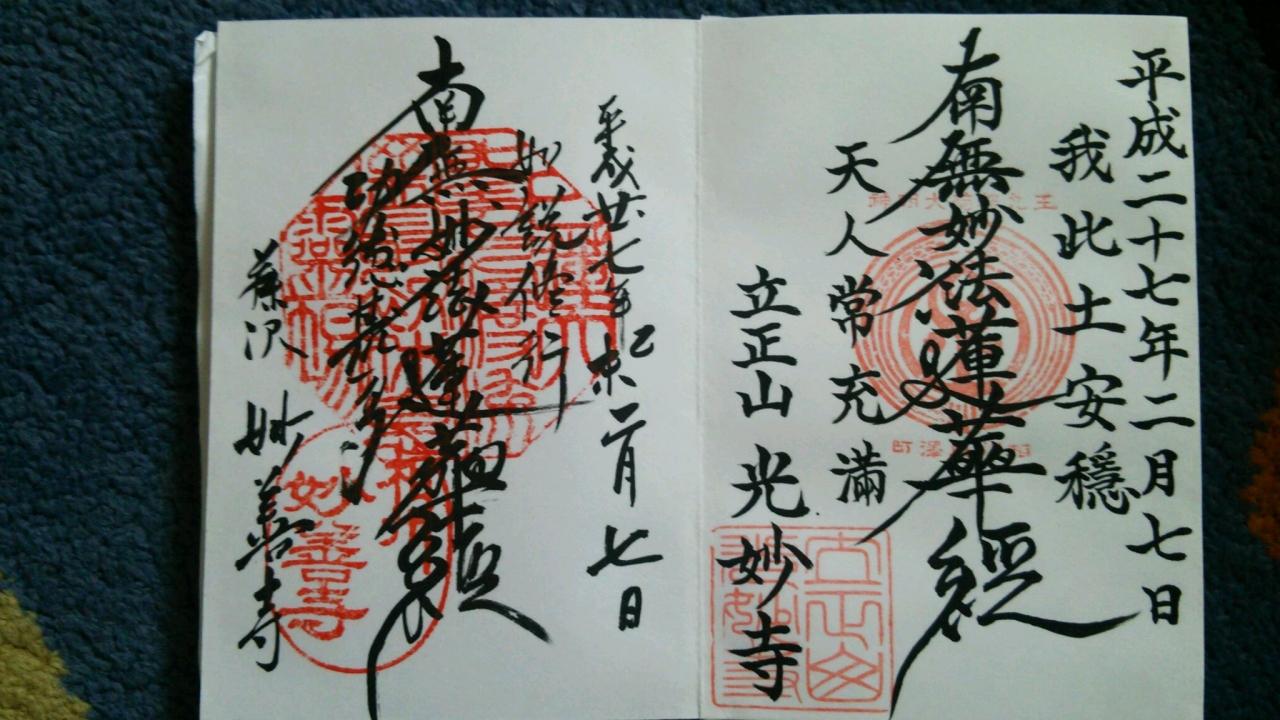 平成二十七年二月七日
我此土安穏
南無妙法蓮華経
天人常充満
立正山 光妙寺
平成廿七年乙未二月七日
如説修行
南無妙法蓮華経
功徳甚多
藤沢 妙善寺
妙善寺